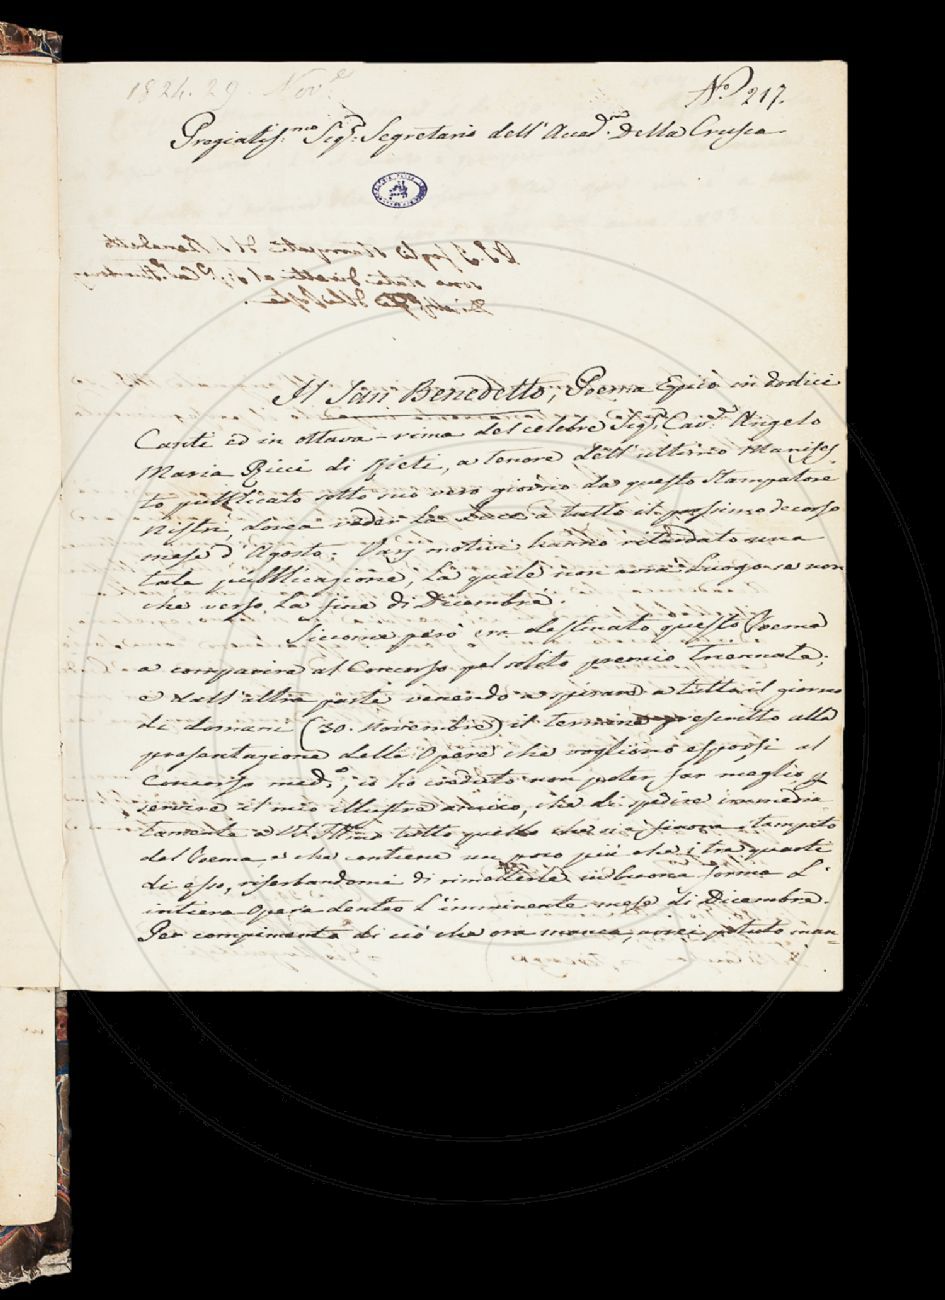 1824. 29. Nov.e
N.o 217.
Pregiatiss.mo Sig.r Segretario dell'Accad.a della Crusca
Il San Benedetto, Poema Epico in dodici
Canti ed in ottava-rima del celebre Sig.r Cav.r Angelo
Maria Ricci di Rieti, a tenore dell'ultimo Manifes
to pubblicato sotto suo vero giorno da questo Stampatore
Nistri, dovea veder la luce a tutto il passimo decorso
mese d'Agosto: Varj motivi hanno ritardato una
tale pubblicazione, la quale non avrà luogo se non
che verso la fine di Dicembre.
Siccome però era destinato questo Poema
a comparire al Concorso pel solito premio triennale;
e dall'altra parte venendo a spirare a tutto il giorno
di domani (30. Novembre) il termine prescritto alla
presentazione delle Opere che vogliano esporsi al
Concorso med.o, io ho creduto non poter far meglio p
servire il mio illustre amico, che di spedire immedia-
tamente a V.S. Ill.ma tutto quello che si è finora stampato
del Poema e che contiene un poco più che i tre quarti
di esso, riserbandomi di rimetterle in buona forma l'
intiera Opera dentro l'imminente mese di Dicembre.
Per compimento di ciò che ora manca, avrei potuto man-